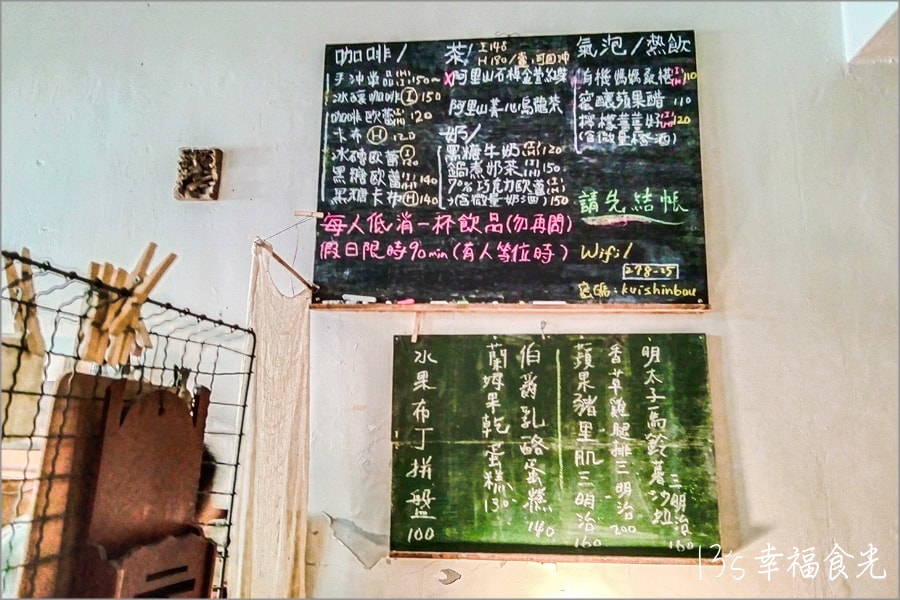 咖啡/
手沖單品(H)(I)150~
冰釀咖啡(I)150
咖啡歐蕾(I)(H)120
卡布(H)120
冰磚歐蕾(I)120
黑糖歐蕾(I)(H)140
黑糖卡布(H)140
茶/ I 140
H 180/壺,可回沖
X阿里山石棹金萱紅茶
阿里山菁心烏龍茶
奶/
黑糖牛奶(I)(H)120
鍋煮奶茶(I)(H)150
70%巧克力歐蕾(I)(H)
(含微量奶酒)150
氣泡/熱飲
有機媽媽桑椹(I)(H)110
蜜釀蘋果醋 110
檸檬薑薑好(I)(H)120
(含微量橙酒)
請先結帳
每人低消一杯飲品(勿再問)
假日限時90min(有人等位時)
Wifi/
278-25
密碼:kuishinbou
明太子馬鈴薯沙拉三明治160
香草雞腿排三明治200
蘋果豬里肌三明治160
伯爵乳酪蛋糕140
蘭姆果乾蛋糕130
水果布丁拼盤100
13's幸福食光